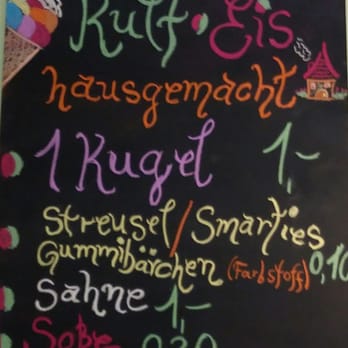 Kult • Eis
hausgemacht
1 Kugel 1,-
Streusel / Smarties
Gummibärchen (Farbstoff) 0,10
Sahne 1,-
Soße